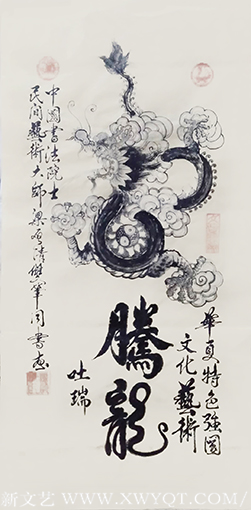 騰龍
吐瑞
華夏特色强国
文化藝術
中國書法院士
民间藝術大師
新文艺 WWW.XWYQT.COM